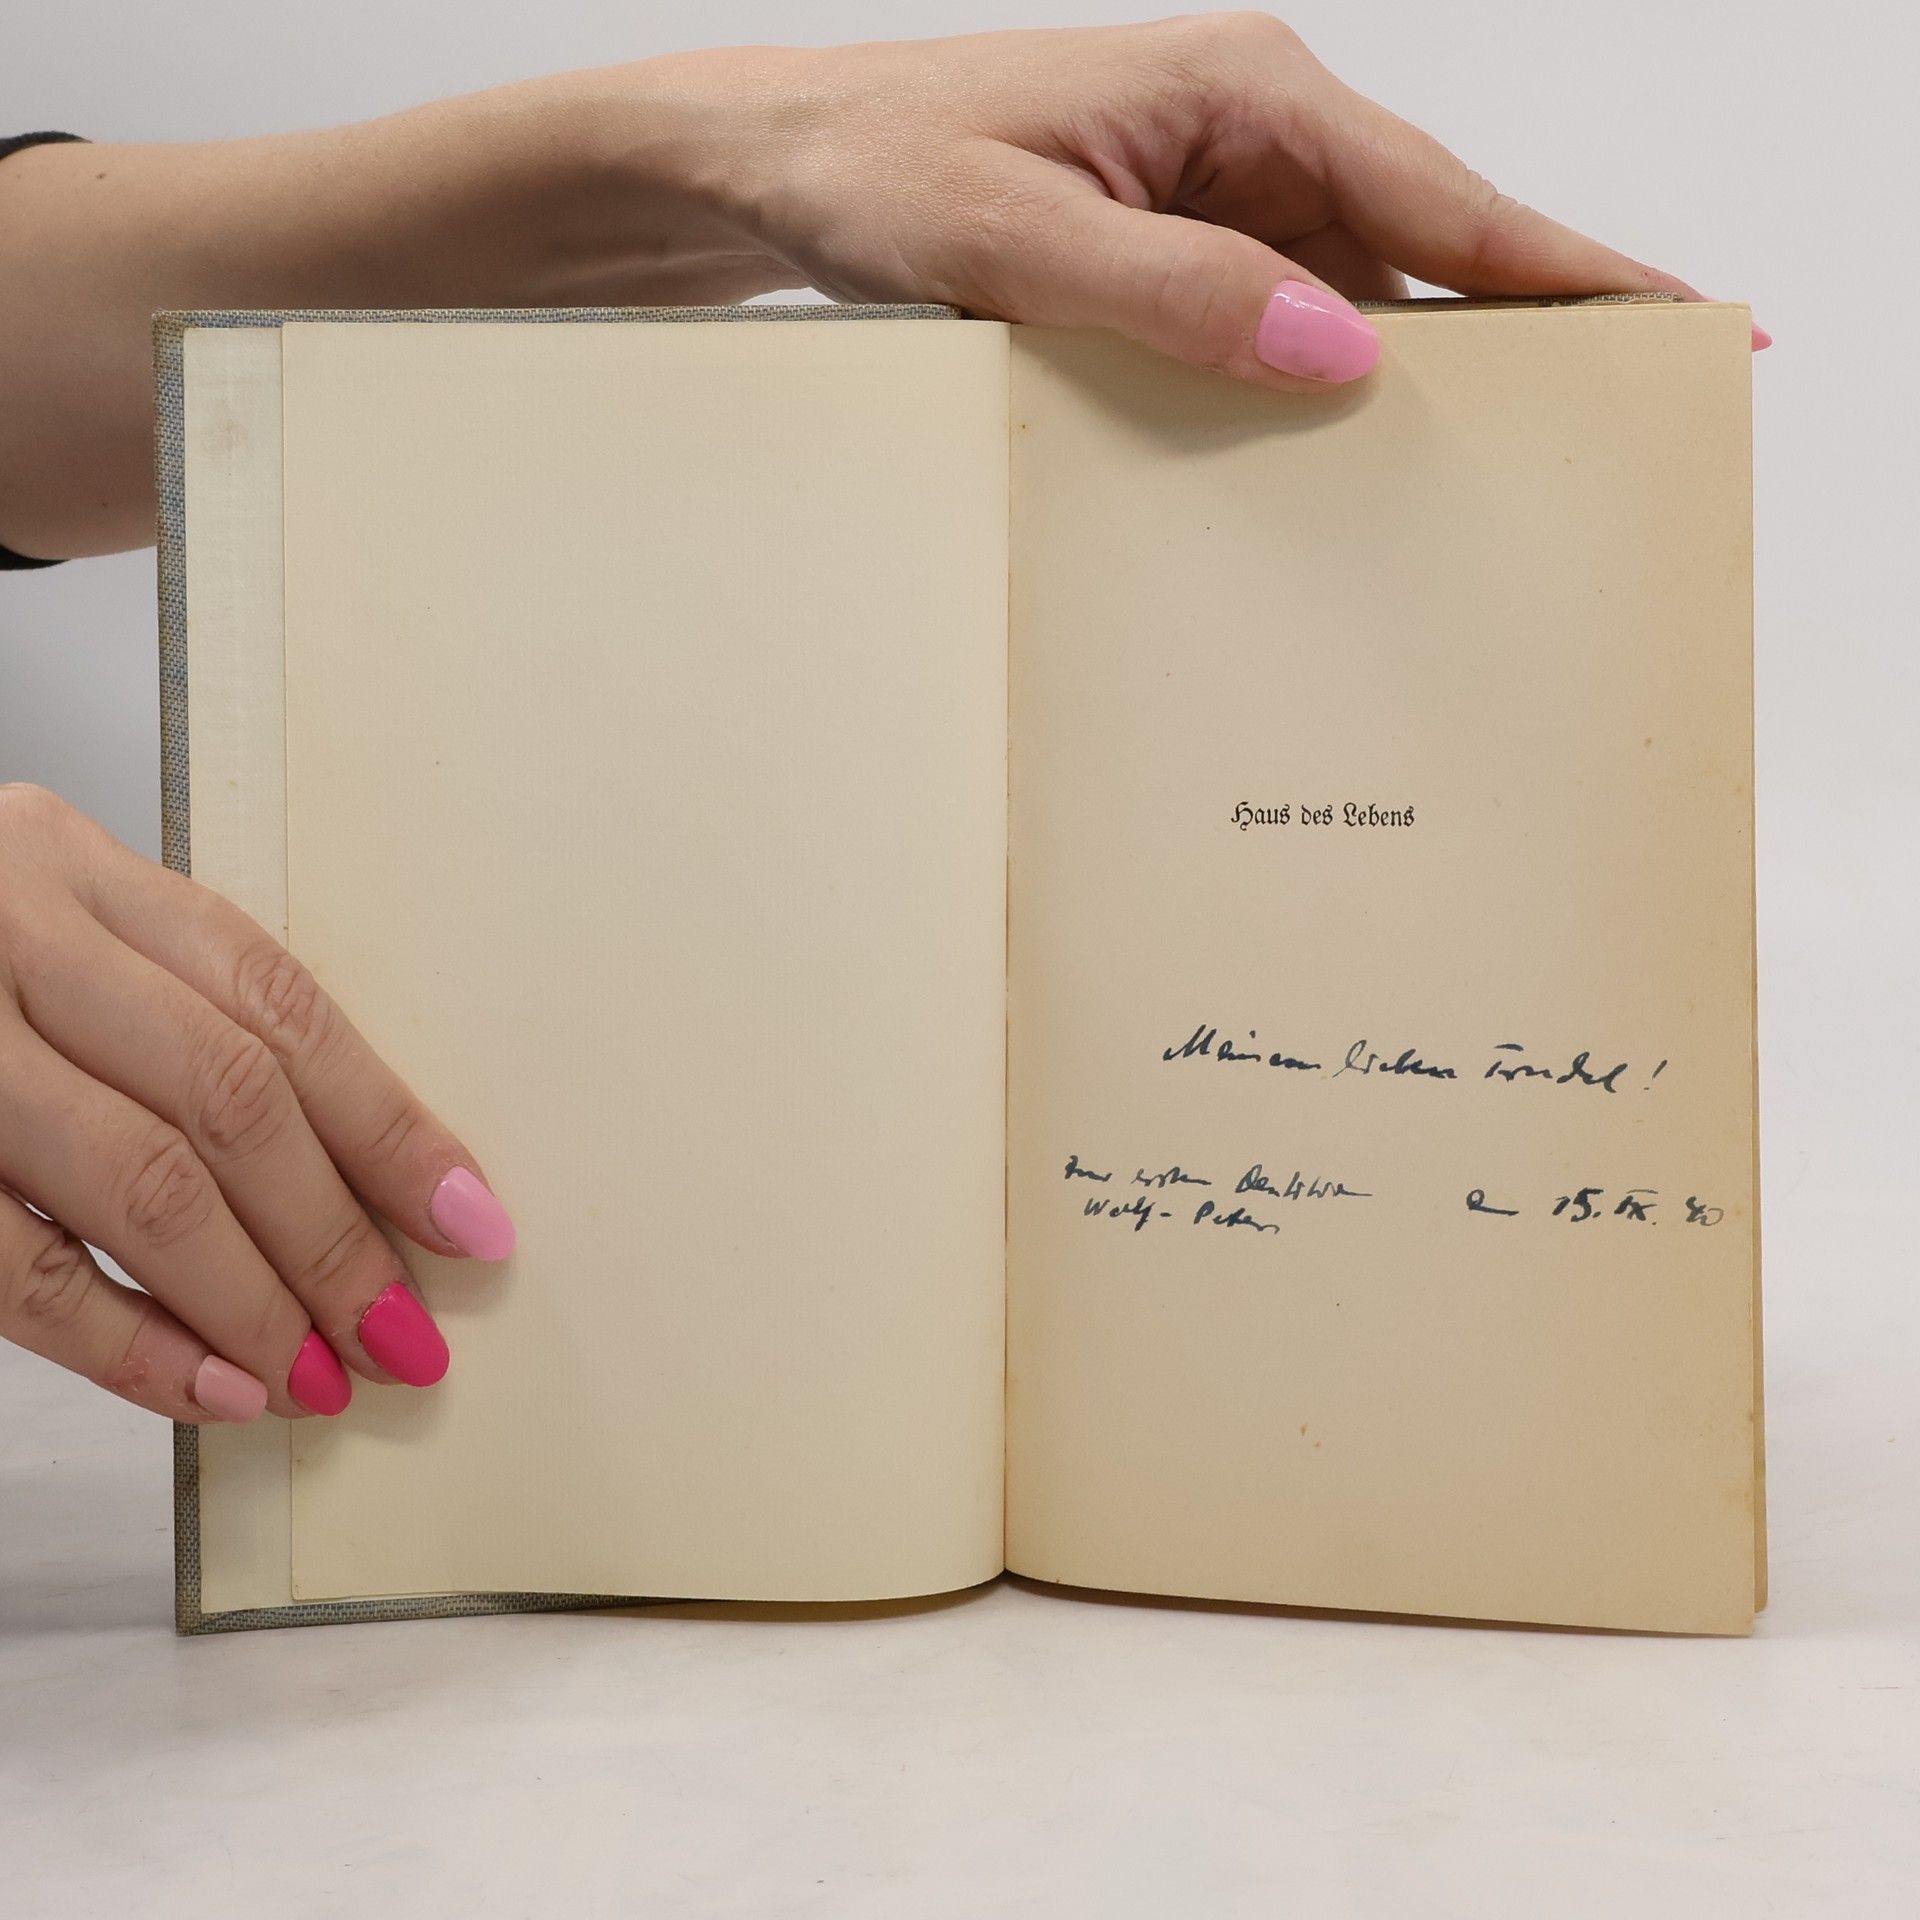 Haus des Lebens
Meinem lieben Trudel!
zur ersten
Wolf-Peters am 15. IX. 40